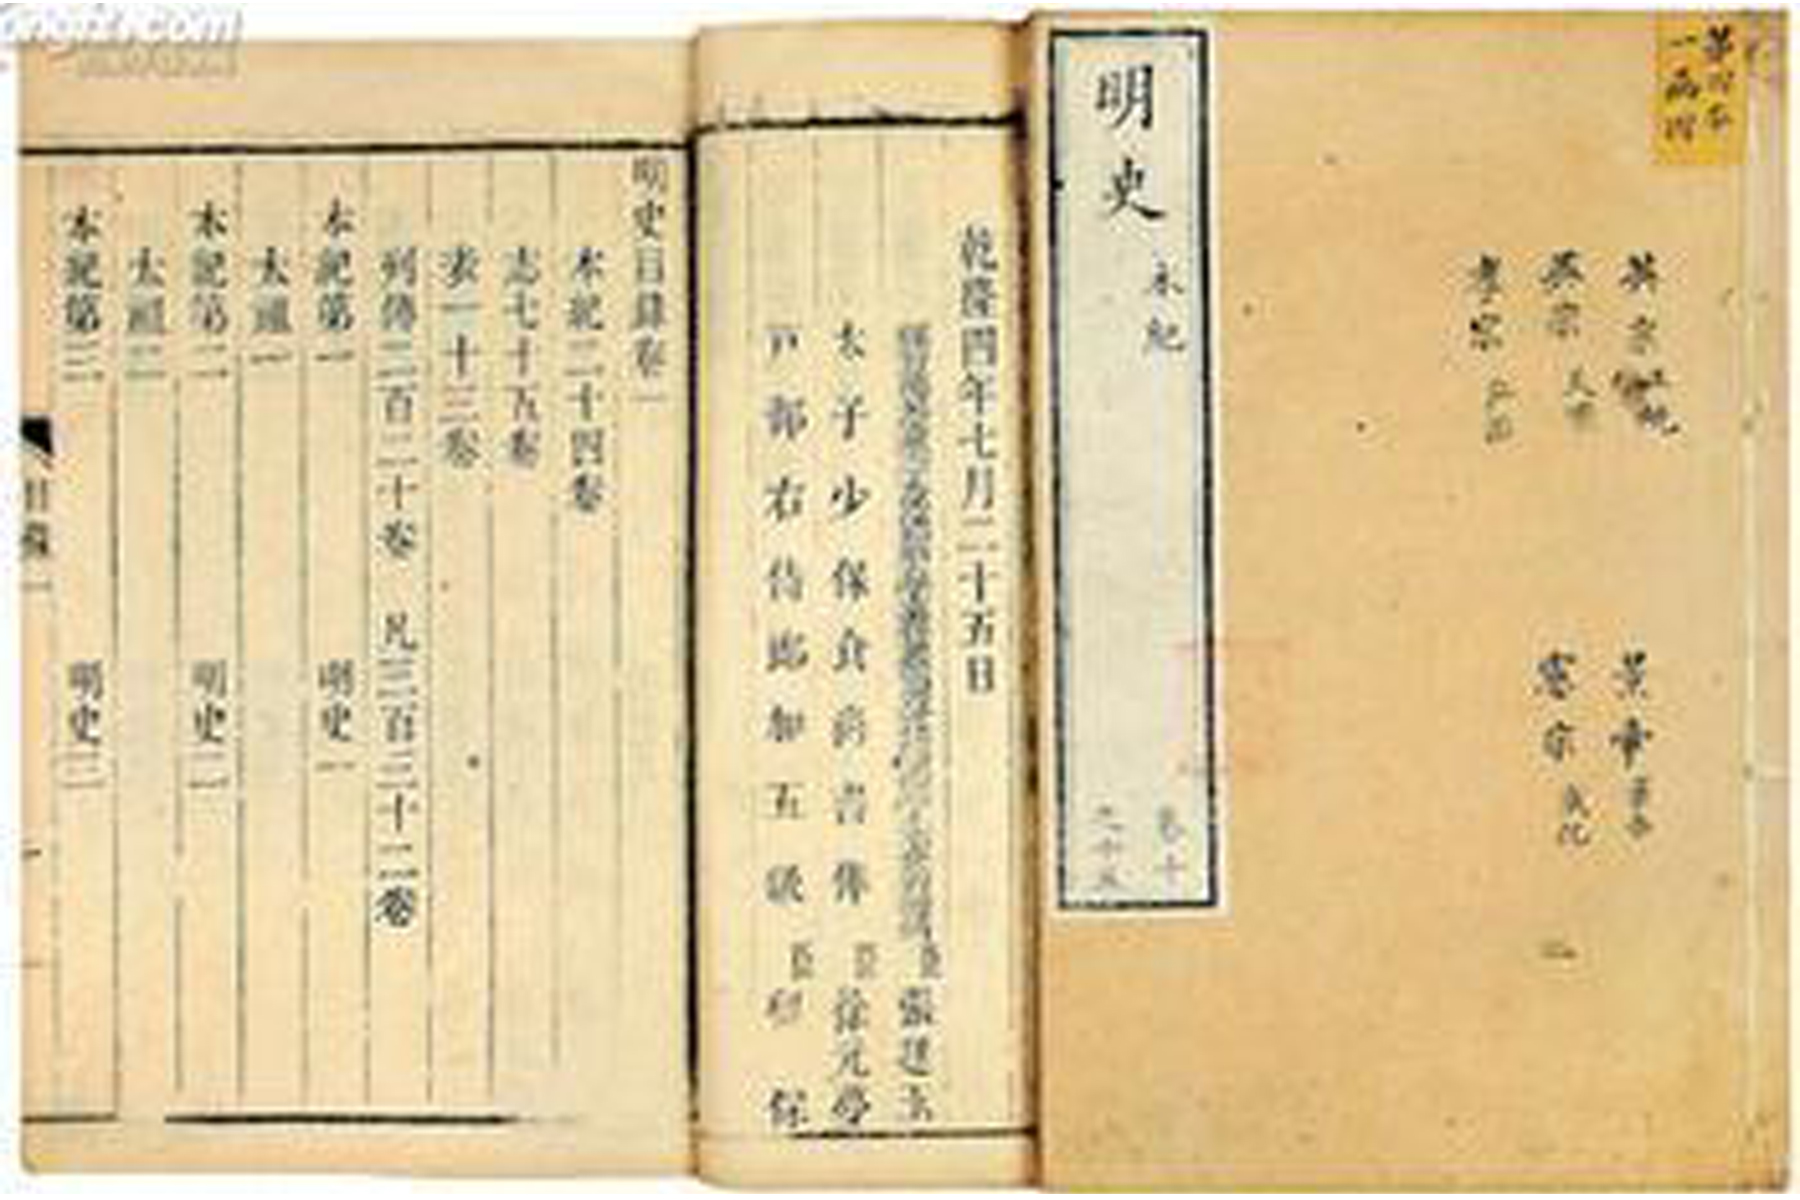 明史
本紀
卷十
之十五
英宗 正統
英宗 天順
孝宗 弘治
景帝 景泰
憲宗 成化
乾隆四年七月二十五日
張廷玉
太子少保食尚書俸臣徐元夢
戶部右侍郎加五級臣留保
明史目錄卷一
本紀二十四卷
志七十五卷
表一十三卷
列傳二百二十卷 凡三百三十二卷
本紀第一 明史一
太祖一
本紀第二 明史二
太祖二
本紀第三 明史三
目錄一